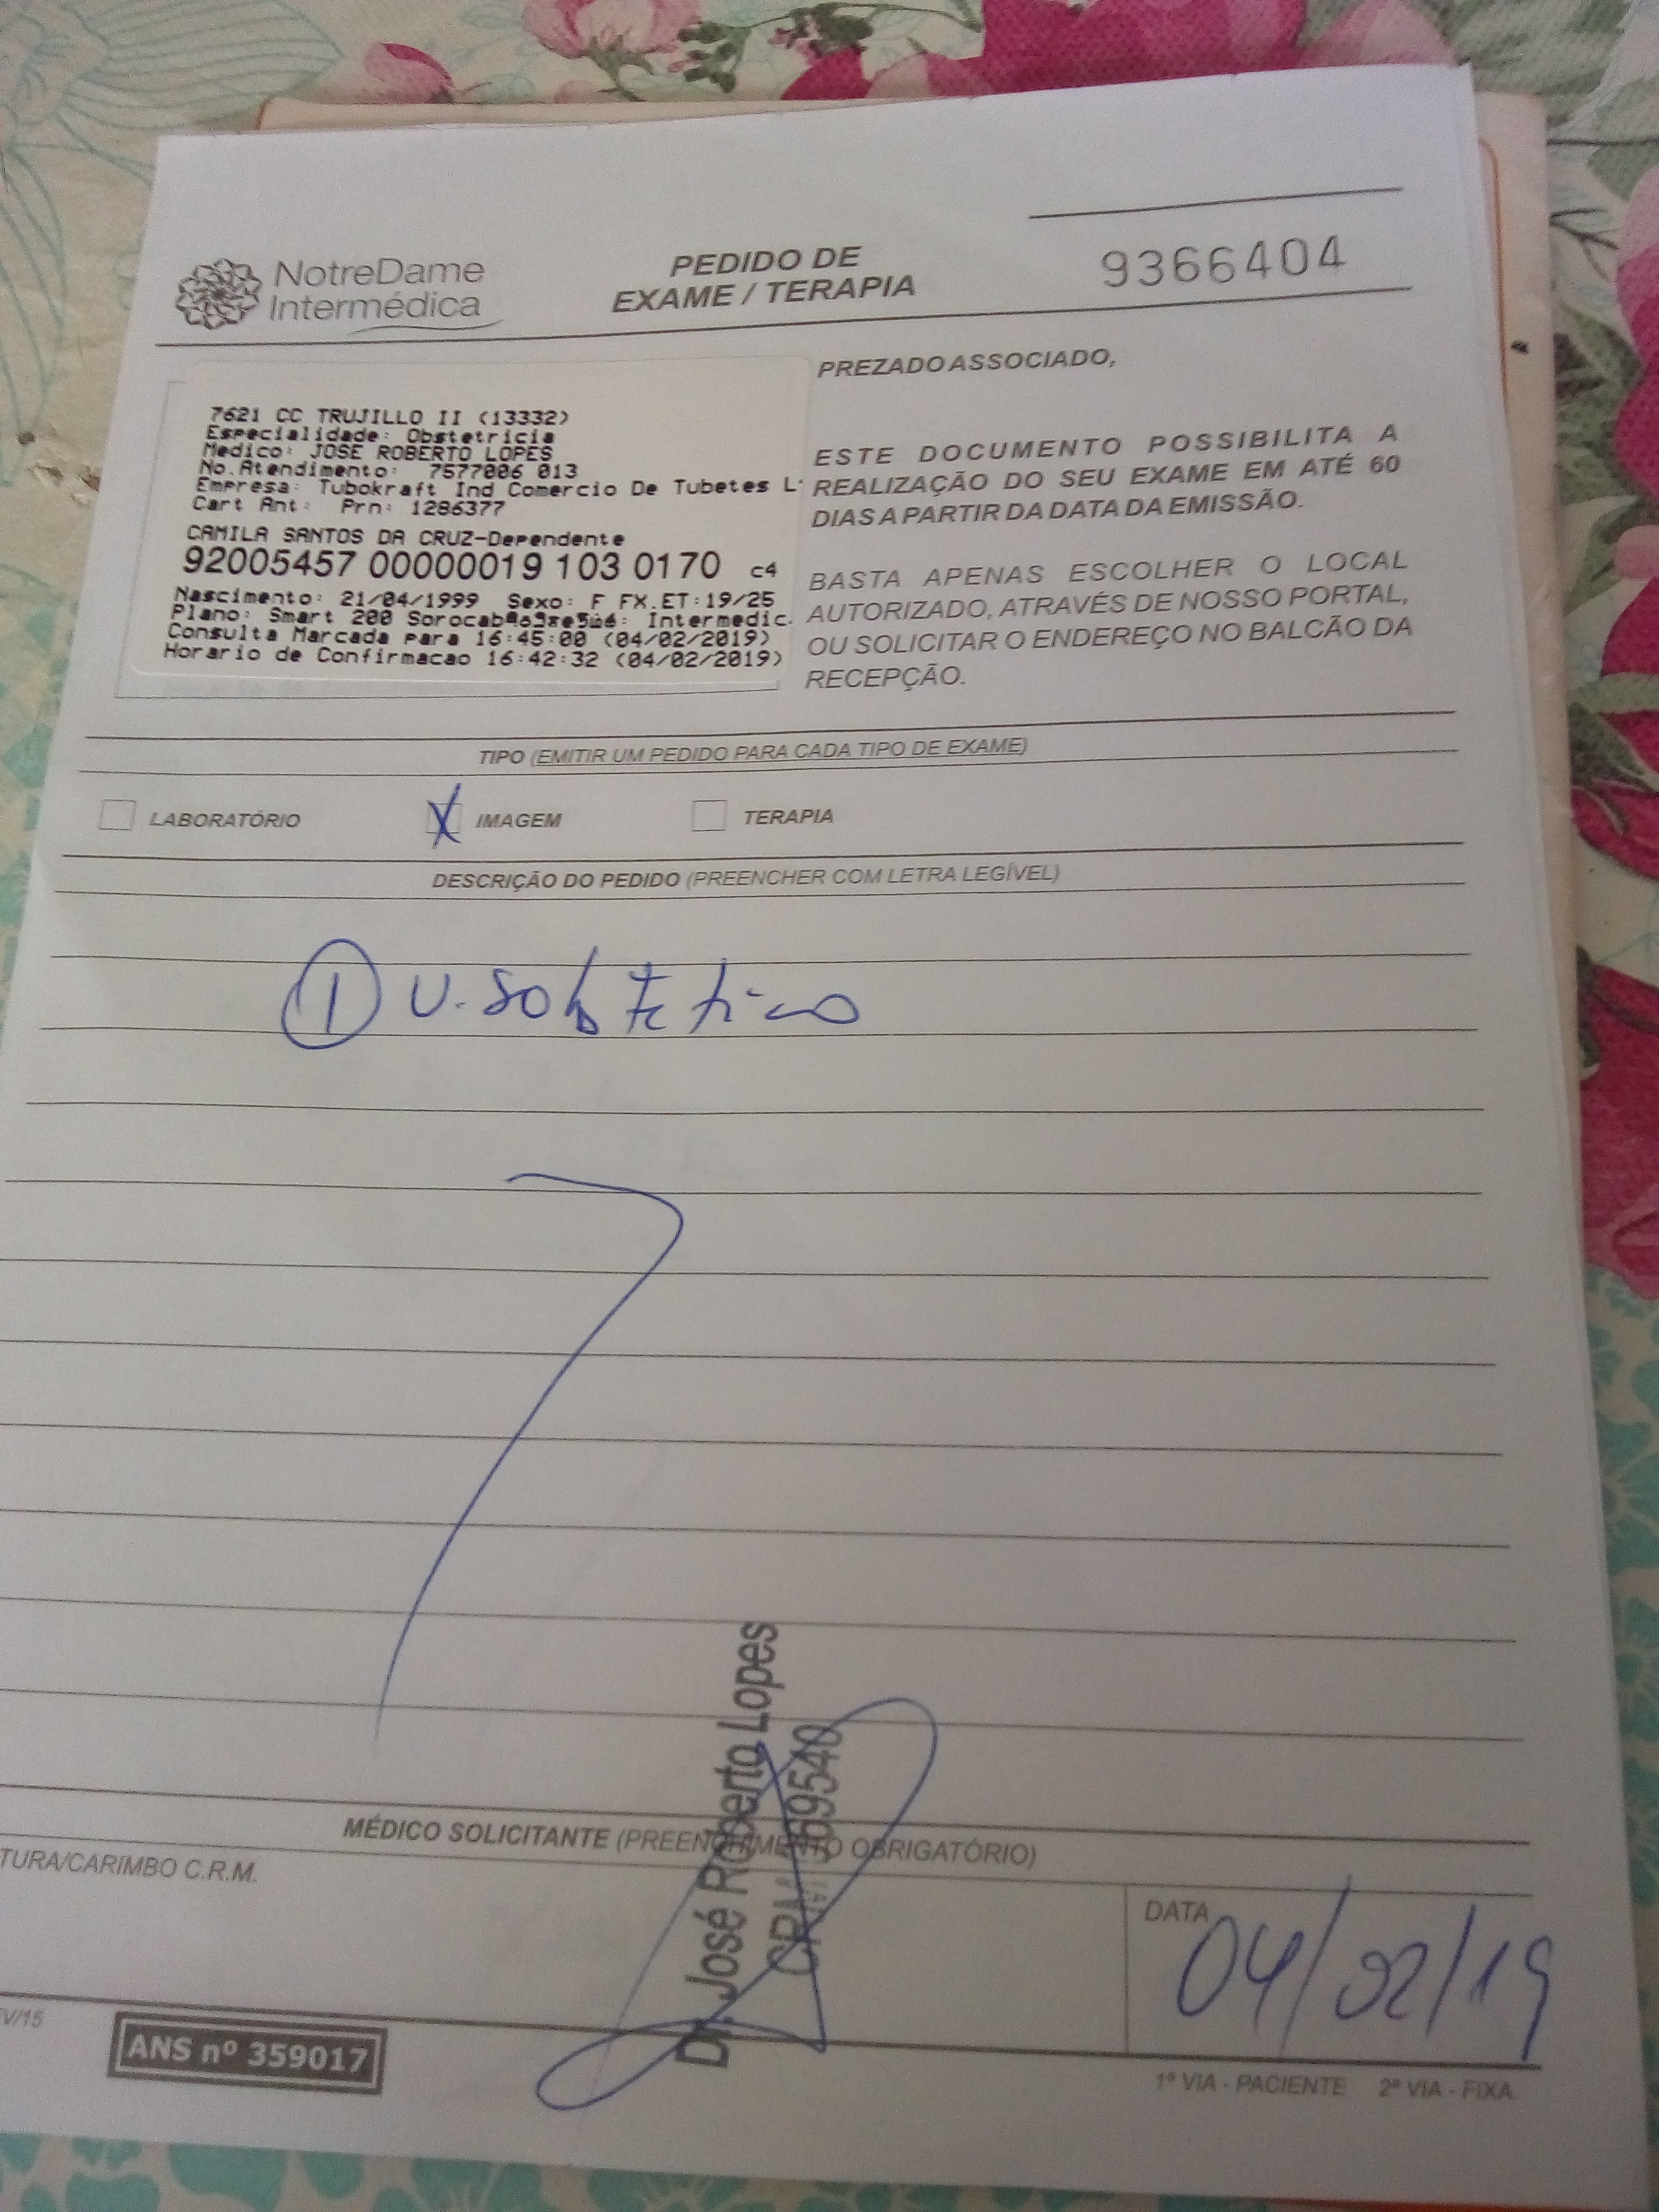 NotreDame
Intermédica
PEDIDO DE
EXAME / TERAPIA
9366404
7621 CC TRUJILLO II (13332)
Especialidade: Obstetricia
Medico: JOSE ROBERTO LOPES
No.Atendimento: 7577006 013
Empresa: Tubokraft Ind Comercio De Tubetes L
Cart Ant: Prn: 1286377
CAMILA SANTOS DA CRUZ-Dependente
92005457 00000019 103 0170 c4
Nascimento: 21/04/1999 Sexo: F FX.ET:19/25
Plano: Smart 200 Intermedic.
Consulta Marcada para 16:45:00 (04/02/2019)
Horario de Confirmacao 16:42:32 (04/02/2019)
PREZADO ASSOCIADO,
ESTE DOCUMENTO POSSIBILITA A
REALIZAÇÃO DO SEU EXAME EM ATÉ 60
DIAS A PARTIR DA DATA DA EMISSÃO.
BASTA APENAS ESCOLHER O LOCAL
AUTORIZADO, ATRAVÉS DE NOSSO PORTAL,
OU SOLICITAR O ENDEREÇO NO BALCÃO DA
RECEPÇÃO.
TIPO (EMITIR UM PEDIDO PARA CADA TIPO DE EXAME)
LABORATÓRIO X IMAGEM TERAPIA
DESCRIÇÃO DO PEDIDO (PREENCHER COM LETRA LEGÍVEL)
1 U.S obstetrico
MÉDICO SOLICITANTE (PREENCHIMENTO OBRIGATÓRIO)
TURA/CARIMBO C.R.M.
Dr. José Roberto Lopes
CRM 69540
DATA
04/02/19
V/15
ANS nº 359017
1ª VIA - PACIENTE 2ª VIA - FIXA